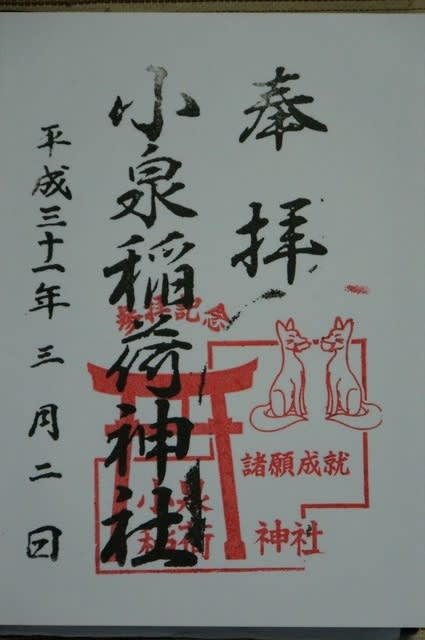 奉拝
小泉稲荷神社
平成三十一年三月二日
参拝記念
諸願成就
小泉
稲荷神社